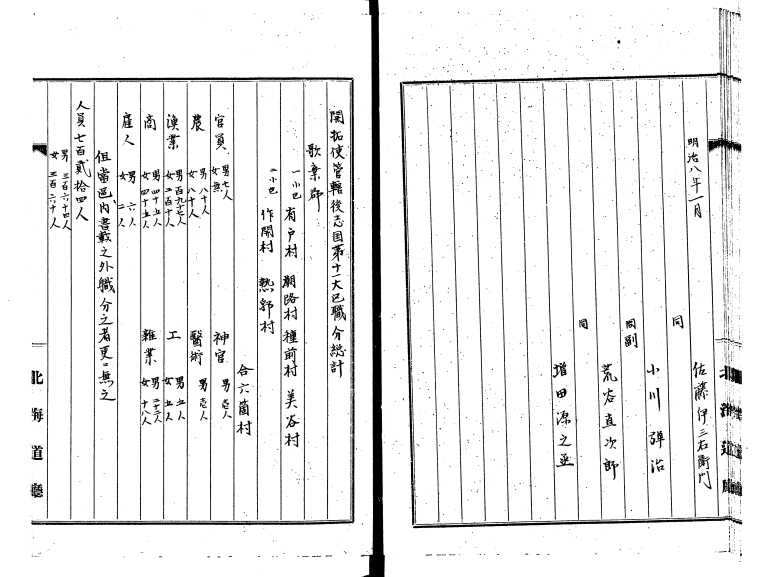 明治八年一月
佐藤伊三右衛門
同
小川弾治
同副
荒谷直次郎
同
増田源之丞
開拓使管轄後志国第十一大区職分総計
歌棄郡
一小区 有戸村 潮路村 種前村 美谷村
二小区 作開村 熱郛村
合六箇村
官員 男七人 女無 神官 男壱人
農 男八十人 女八十人 醫術 男壱人
漁業 男百九十七人 女二百十人 工 男五人 女五人
商 男四十五人 女四十五人 雑業 男二十三人 女十八人
雇人 男六人 女二人
但當區内書載之外職分之者更ニ無之
人員七百貳拾四人
男三百六十四人
女三百六十人
北海道廳